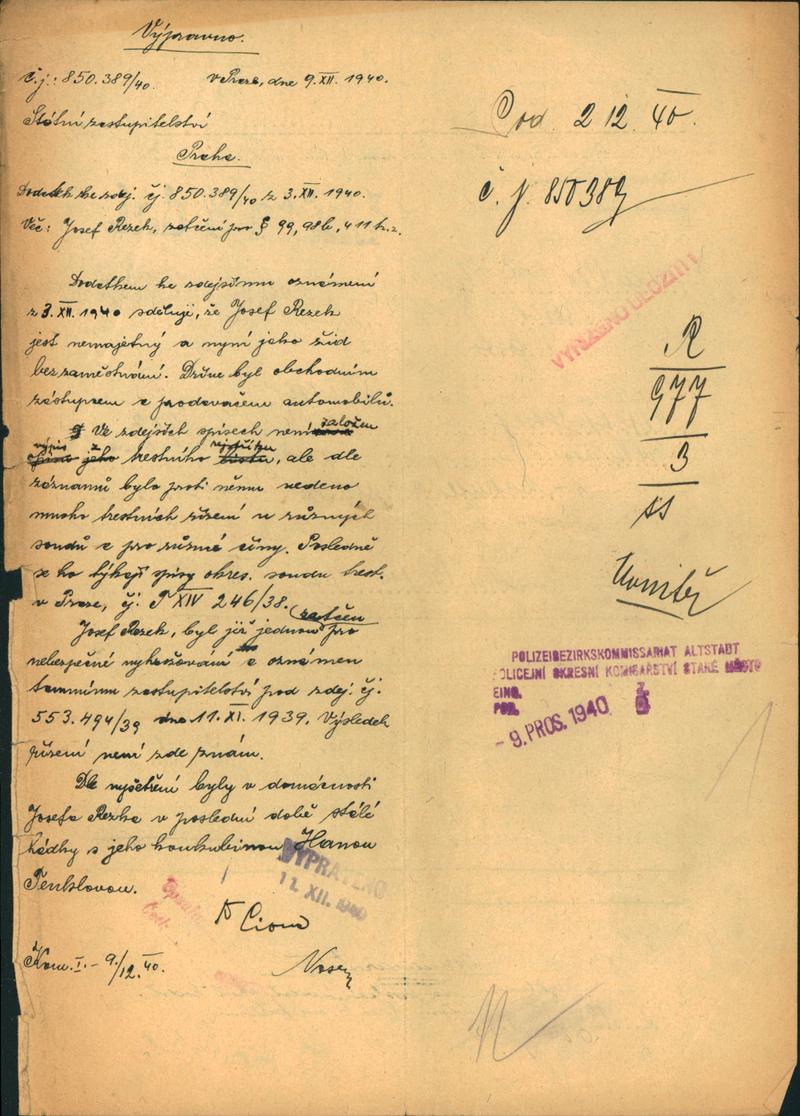 Výpravno.
č.j.: 850.389/40. v Praze, dne 9.XII. 1940.
Státní zastupitelství
Praha.
Dodatek ke zdej. čj. 850.389/40 z 3.XII. 1940.
Věc: Josef Rezek, zatčení pro § 99, 98b, 411 tr.z.
Dodatkem ke zdejšímu oznámení
z 3. XII. 1940 sděluji, že Josef Rezek
jest nemajetný a nyní jako žid
bez zaměstnání. Dříve byl obchodním
zástupcem a prodavačem automobilů.
Ve zdejších spisech není založen
výpis z trestního rejstříku, ale dle
záznamů bylo proti němu vedeno
mnoho trestních řízení u různých
soudů a pro různé činy. Posledně
se ho týkají spisy okres. soudu trest.
v Praze, čj. T XIV 246/38.
Josef Rezek, byl již jednou zatčen pro
nebezpečné vyhrožování a oznámen
tamnímu zastupitelství pod zdej. čj.
553.494/39 dne 11.XI. 1939. Výsledek
řízení není zde znám.
Dle vyšetření byly v domácnosti
Josefa Rezka v poslední době stálé
hádky s jeho konkubinou Hanou
Tenklovou.
VYPRAVENO
11. XII. 1940
Kom. I. - 9./12. 40.
Pod 2 12. 40.
č. j. 850389
VYŘÍZENO ULOŽITI!
R
977
3
Uvnitř
POLIZEIBEZIRKSKOMMISSARIAT ALTSTADT
POLICEJNÍ OKRESNÍ KOMISAŘSTVÍ STARÉ MĚSTO
EING.
POD.
- 9. PROS. 1940